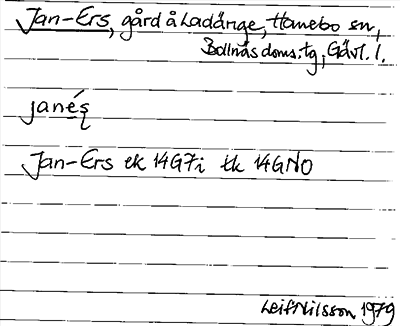 Jan-Ers, gård å Ladänge, Hanebo sn,
Bollnäs doms.tg, Gävl. l.
janéş
Jan-Ers ek 14G7i tk 14GNO
Leif Nilsson 1979